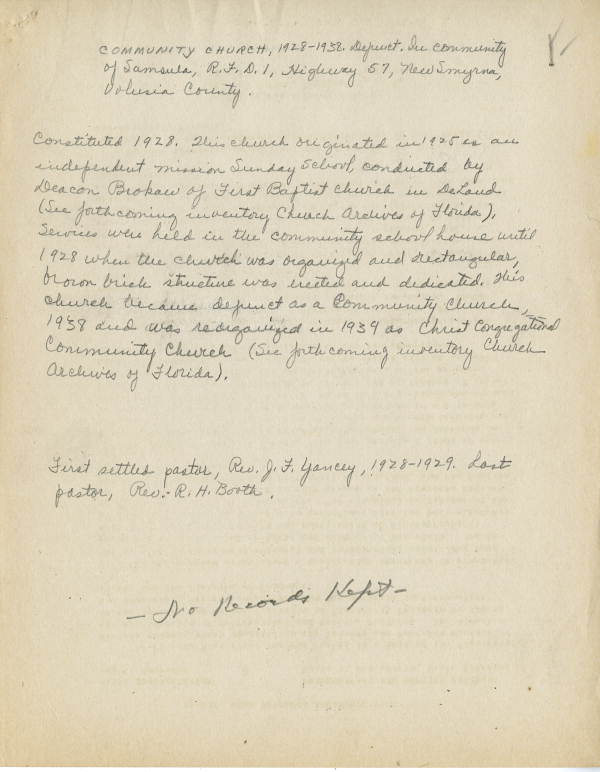 COMMUNITY CHURCH, 1928-1938. Defunct. In community
of Samsula, R.F.D. 1, Highway 57, New Smyrna,
Volusia County.
Constituted 1928. This church originated in 1925 as an
independent mission Sunday School, conducted by
Deacon Brokaw of First Baptist Church in DeLand
(See forthcoming inventory Church Archives of Florida).
Services were held in the community school house until
1928 when the church was organized and rectangular,
brown brick structure was erected and dedicated. This
church became defunct as a Community Church,
1938 and was reorganized in 1939 as Christ Congregational
Community Church (See forthcoming inventory Church
Archives of Florida).
First settled pastor, Rev. J. F. Yancey, 1928-1929. Last
pastor, Rev. R. H. Booth.
- No Records Kept -